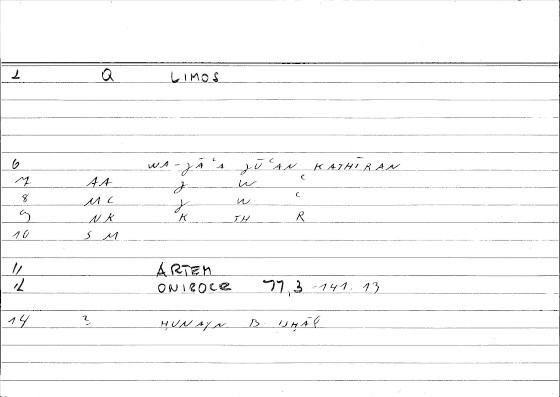 1 Q LIMOS
6 WA-ǦĀʿA ǦŪʿAN KATHĪRAN
7 AA Ǧ W ʿ
8 MC Ǧ W ʿ
9 NK K TH R
10 S M
11 ARTEM
12 ONIROCR 77,3 - 141.13
14 2 HUNAYN B ISḤĀQ